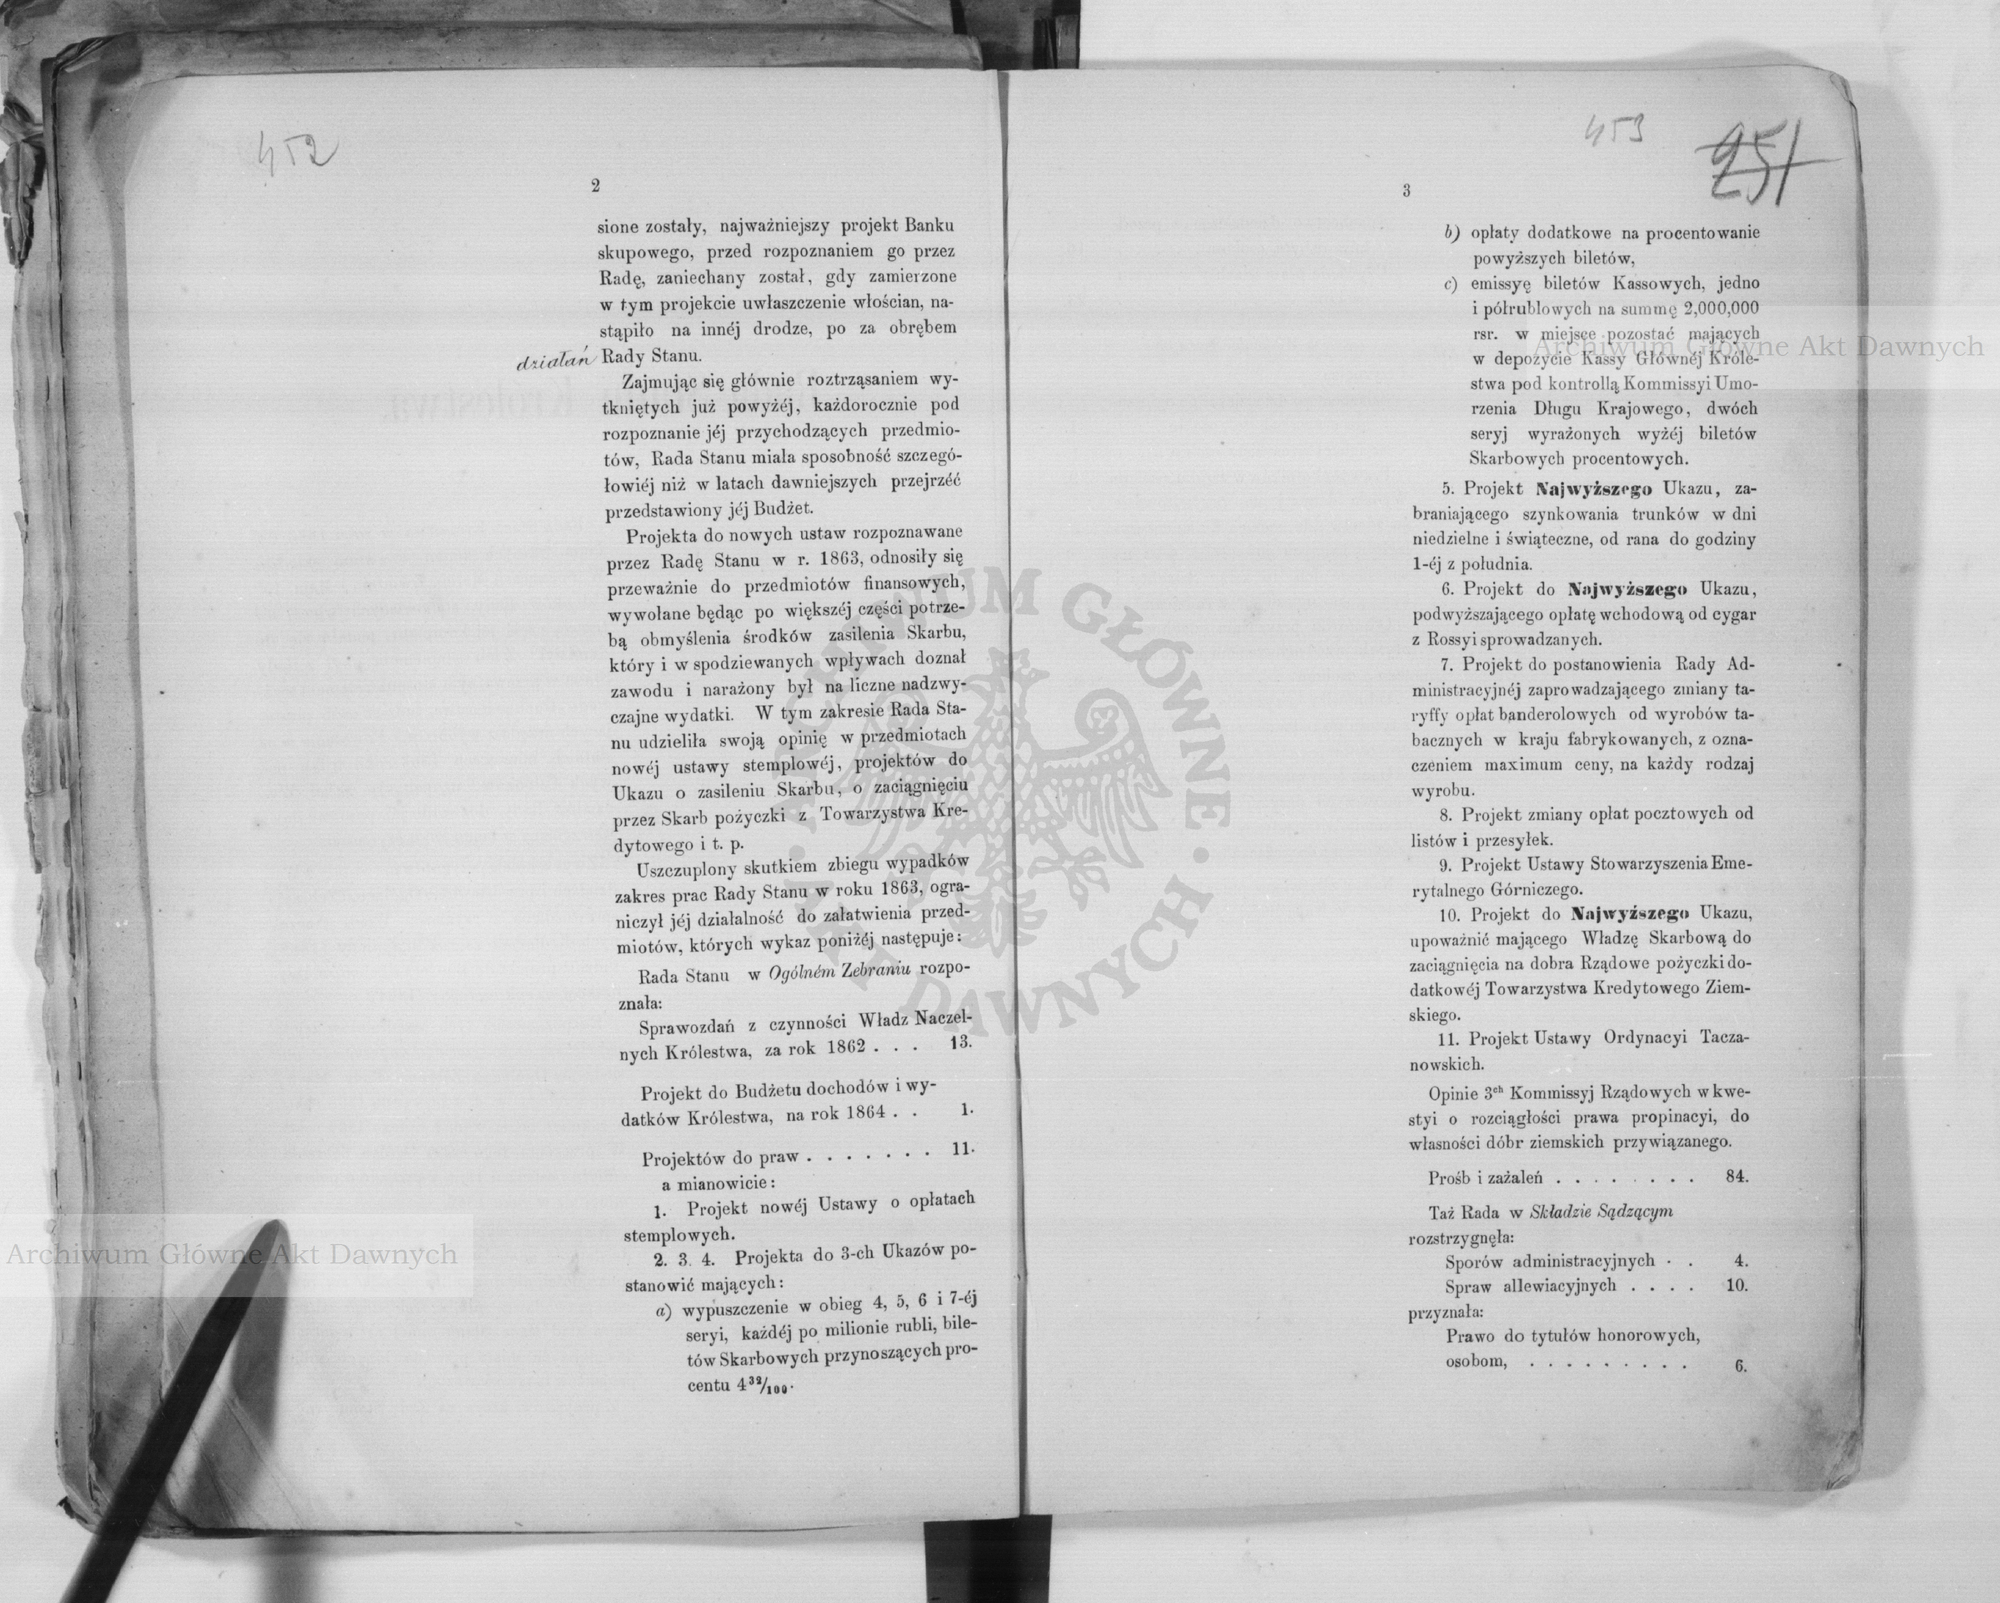 452
2
sione zostały, najważniejszy projekt Banku
skupowego, przed rozpoznaniem go przez
Radę, zaniechany został, gdy zamierzone
w tym projekcie uwłaszczenie włościan, na-
stąpiło na innéj drodze, po za obrębem
działań Rady Stanu.
Zajmując się głównie roztrząsaniem wy-
tkniętych już powyżéj, każdorocznie pod
rozpoznanie jéj przychodzących przedmio-
tów, Rada Stanu miała sposobność szczegó-
łowiéj niż w latach dawniejszych przejrzéć
przedstawiony jéj Budżet.
Projekta do nowych ustaw rozpoznawane
przez Radę Stanu w r. 1863, odnosiły się
przeważnie do przedmiotów finansowych,
wywołane będąc po większéj części potrze-
bą obmyślenia środków zasilenia Skarbu,
który i w spodziewanych wpływach doznał
zawodu i narażony był na liczne nadzwy-
czajne wydatki. W tym zakresie Rada Sta-
nu udzieliła swoją opinię w przedmiotach
nowéj ustawy stemplowéj, projektów do
Ukazu o zasileniu Skarbu, o zaciągnięciu
przez Skarb pożyczki z Towarzystwa Kre-
dytowego i t. p.
Uszczuplony skutkiem zbiegu wypadków
zakres prac Rady Stanu w roku 1863, ogra-
niczył jéj działalność do załatwienia przed-
miotów, których wykaz poniżéj następuje:
Rada Stanu w Ogólném Zebraniu rozpo-
znała:
Sprawozdań z czynności Władz Naczel-
nych Królestwa, za rok 1862 . . . 13.
Projekt do Budżetu dochodów i wy-
datków Królestwa, na rok 1864 . . 1.
Projektów do praw . . . . . . . 11.
a mianowicie:
1. Projekt nowéj Ustawy o opłatach
stemplowych.
2. 3. 4. Projekta do 3-ch Ukazów po-
stanowić mających:
a) wypuszczenie w obieg 4, 5, 6 i 7-éj
seryi, każdéj po milionie rubli, bile-
tów Skarbowych przynoszących pro-
centu 4 32/100.
453
251
3
b) opłaty dodatkowe na procentowanie
powyższych biletów,
c) emissyę biletów Kassowych, jedno
i półrublowych na summę 2,000,000
rsr. w miejsce pozostać mających
w depozycie Kassy Głównéj Króle-
stwa pod kontrollą Kommissyi Umo-
rzenia Długu Krajowego, dwóch
seryj wyrażonych wyżéj biletów
Skarbowych procentowych.
5. Projekt Najwyższego Ukazu, za-
braniającego szynkowania trunków w dni
niedzielne i świąteczne, od rana do godziny
1-éj z południa.
6. Projekt do Najwyższego Ukazu,
podwyższającego opłatę wchodową od cygar
z Rossyi sprowadzanych.
7. Projekt do postanowienia Rady Ad-
ministracyjnéj zaprowadzającego zmiany ta-
ryffy opłat banderolowych od wyrobów ta-
bacznych w kraju fabrykowanych, z ozna-
czeniem maximum ceny, na każdy rodzaj
wyrobu.
8. Projekt zmiany opłat pocztowych od
listów i przesyłek.
9. Projekt Ustawy Stowarzyszenia Eme-
rytalnego Górniczego.
10. Projekt do Najwyższego Ukazu,
upoważnić mającego Władzę Skarbową do
zaciągnięcia na dobra Rządowe pożyczki do-
datkowéj Towarzystwa Kredytowego Ziem-
skiego.
11. Projekt Ustawy Ordynacyi Tacza-
nowskich.
Opinie 3ch Kommissyj Rządowych w kwe-
styi o rozciągłości prawa propinacyi, do
własności dóbr ziemskich przywiązanego.
Prośb i zażaleń . . . . . . . . 84.
Taż Rada w Składzie Sądzącym
rozstrzygnęła:
Sporów administracyjnych . . 4.
Spraw allewiacyjnych . . . . 10.
przyznała:
Prawo do tytułów honorowych,
osobom, . . . . . . . . . 6.
Archiwum Główne Akt Dawnych
Archiwum Główne Akt Dawnych
ARCHIWUM GŁÓWNE · AKT DAWNYCH ·